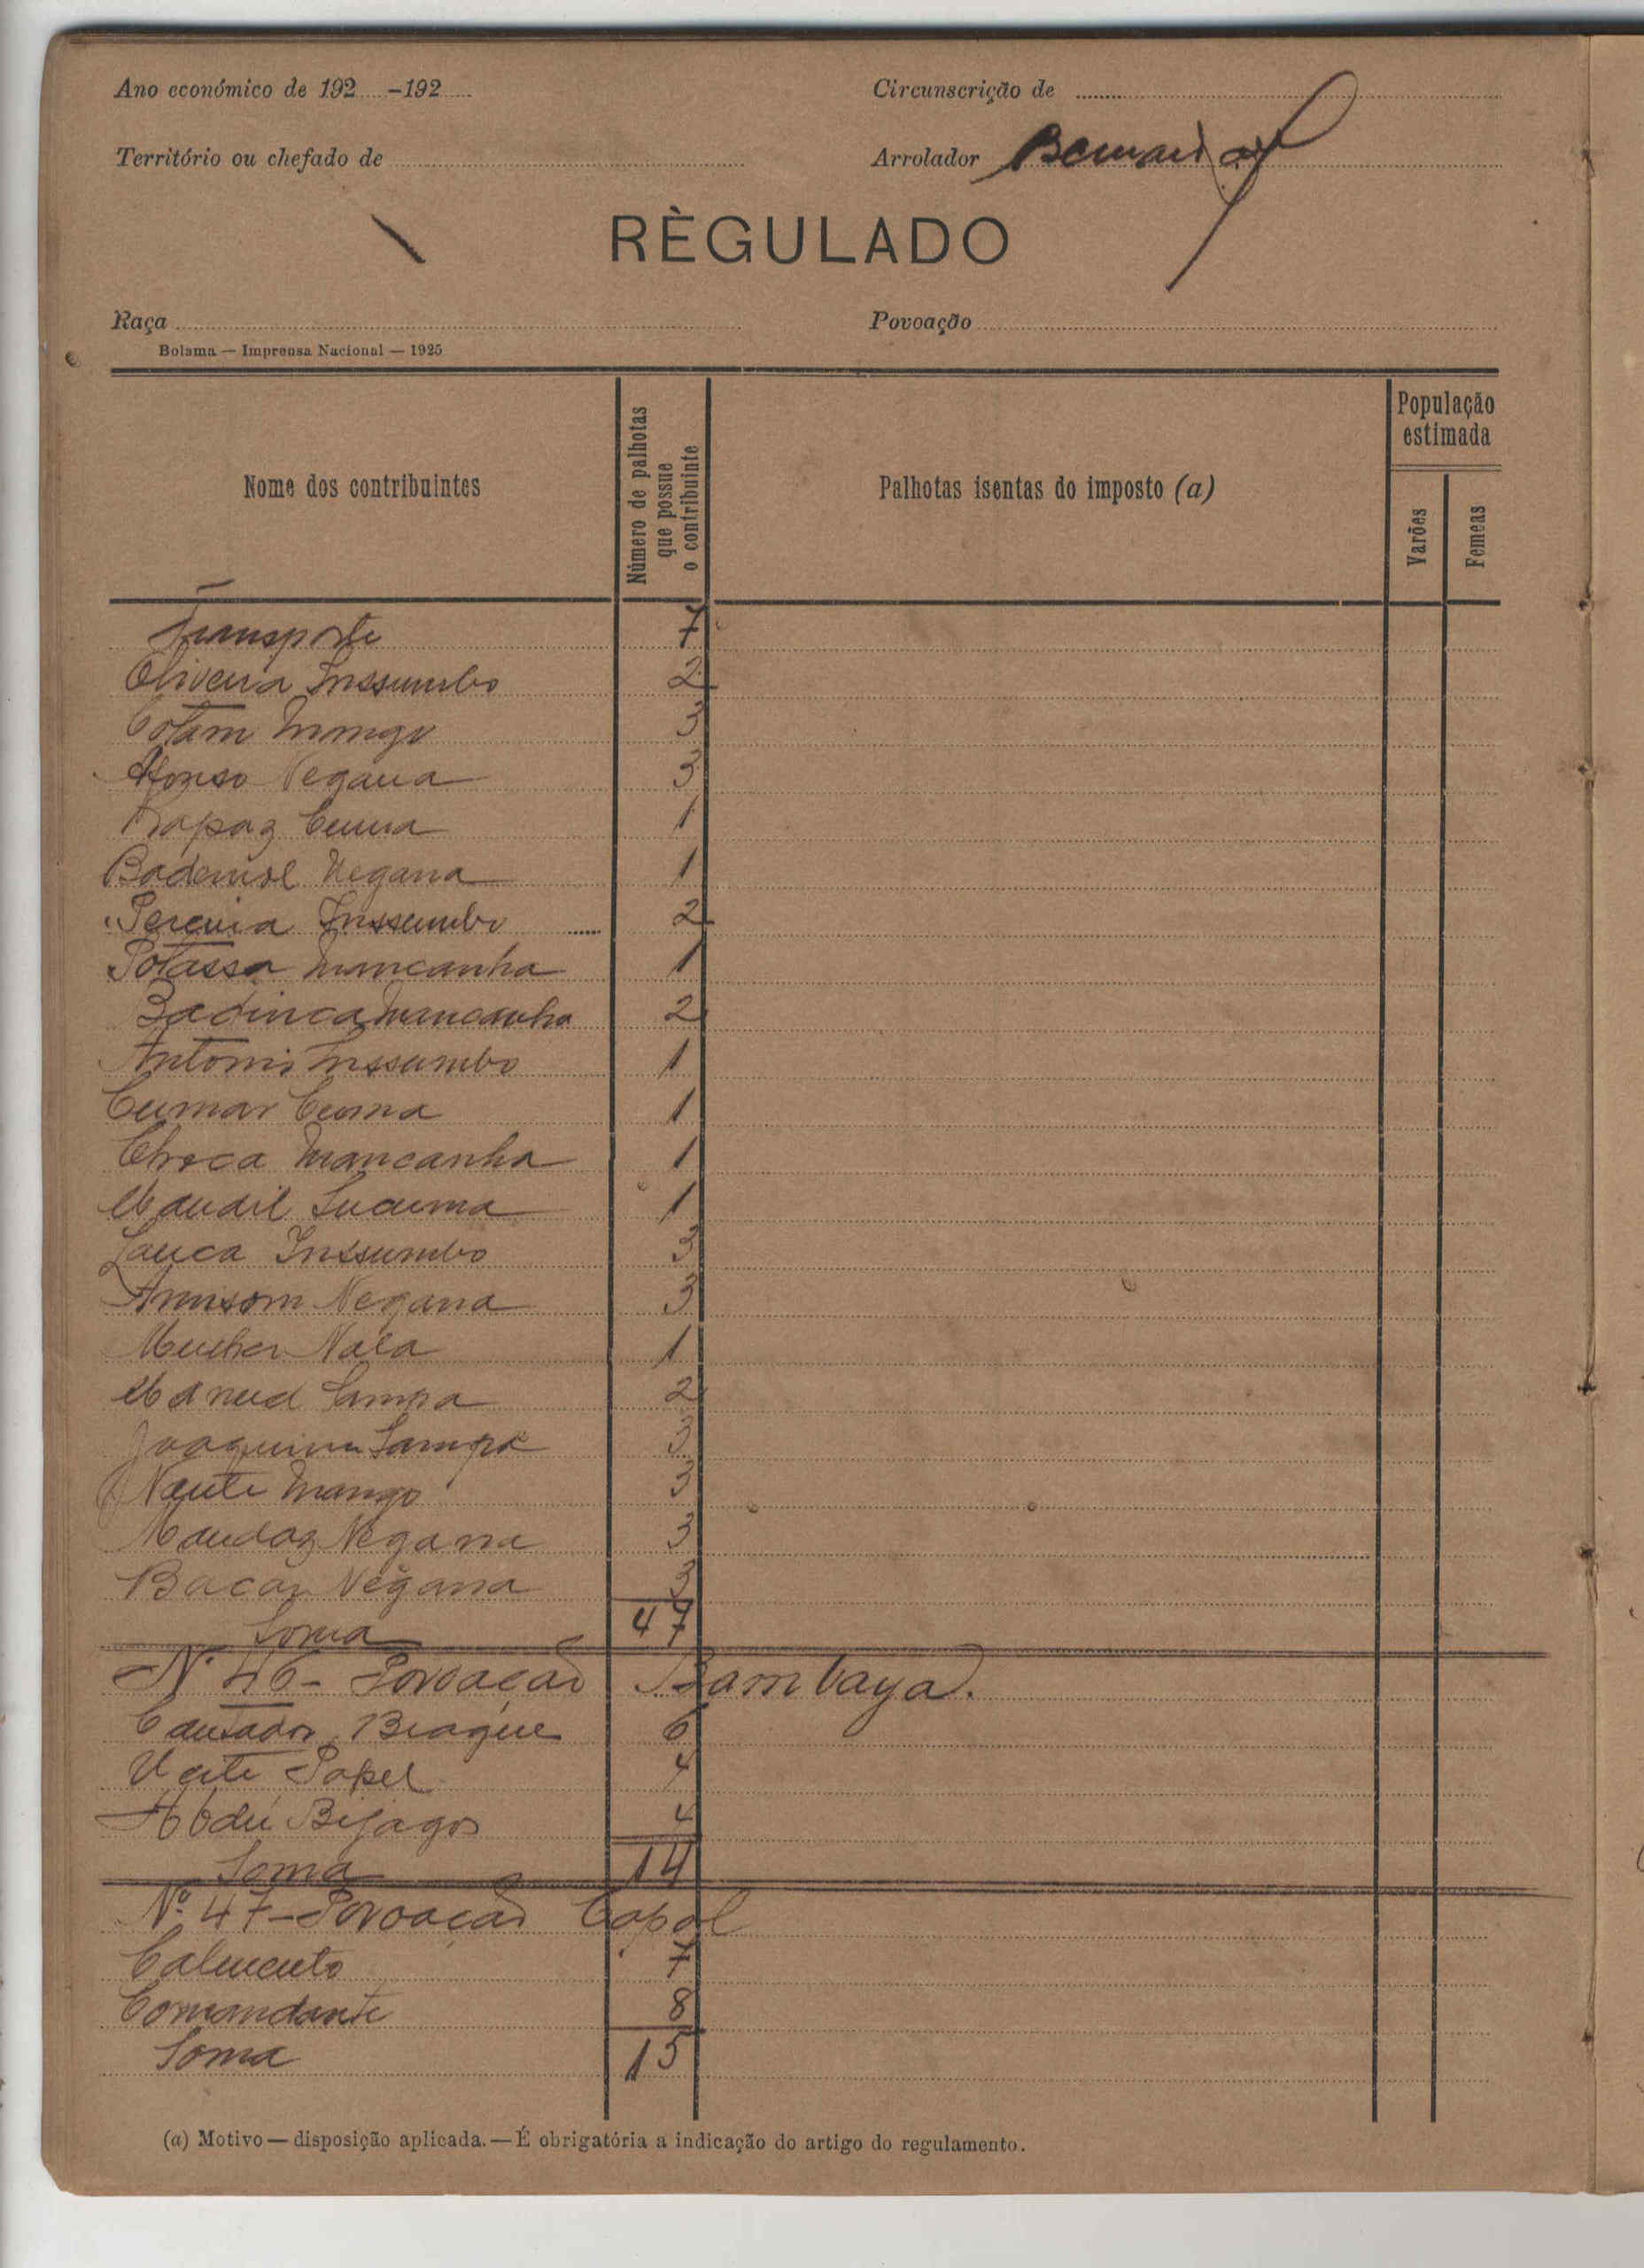 Ano económico de 192 -192
Circunscrição de
Território ou chefado de
Arrolador
RÈGULADO
Raça
Povoação
Bolama — Imprensa Nacional — 1925
Nome dos contribuintes
Número de palhotas que possue o contribuinte
Palhotas isentas do imposto (a)
População estimada
Varões
Femeas
Transporte 7
Oliveira Inssumbo 2
Cotam Mango 3
Afonso Negana 3
Rapaz Cuma 1
Negana 1
Pereira Inssumbo 2
Potassa Mancanha 1
Badinca Mancanha 2
Antonio Inssumbo 1
Cumar Cuma 1
Choca Mancanha 1
1
Lauca Inssumbo 3
Negana 3
Mulher Nala 1
Manuel Sampa 2
Joaquim Sampa 3
Naute Mango 3
Negana 3
Bacar Negana 3
Soma 47
Nº 46 - Povoação Bambaya.
Cansador Biague 6
Papel 4
Abdú Bijagos 4
Soma 14
Nº 47 - Povoação Capol
7
Comandante 8
Soma 15
(a) Motivo — disposição aplicada. — É obrigatória a indicação do artigo do regulamento.